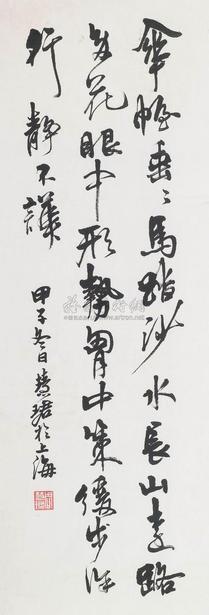 傘幄垂〻馬踏沙水長山遠路
多花眼中形勢胷中策緩步徐
行靜不譁
甲子冬日慧珺於上海